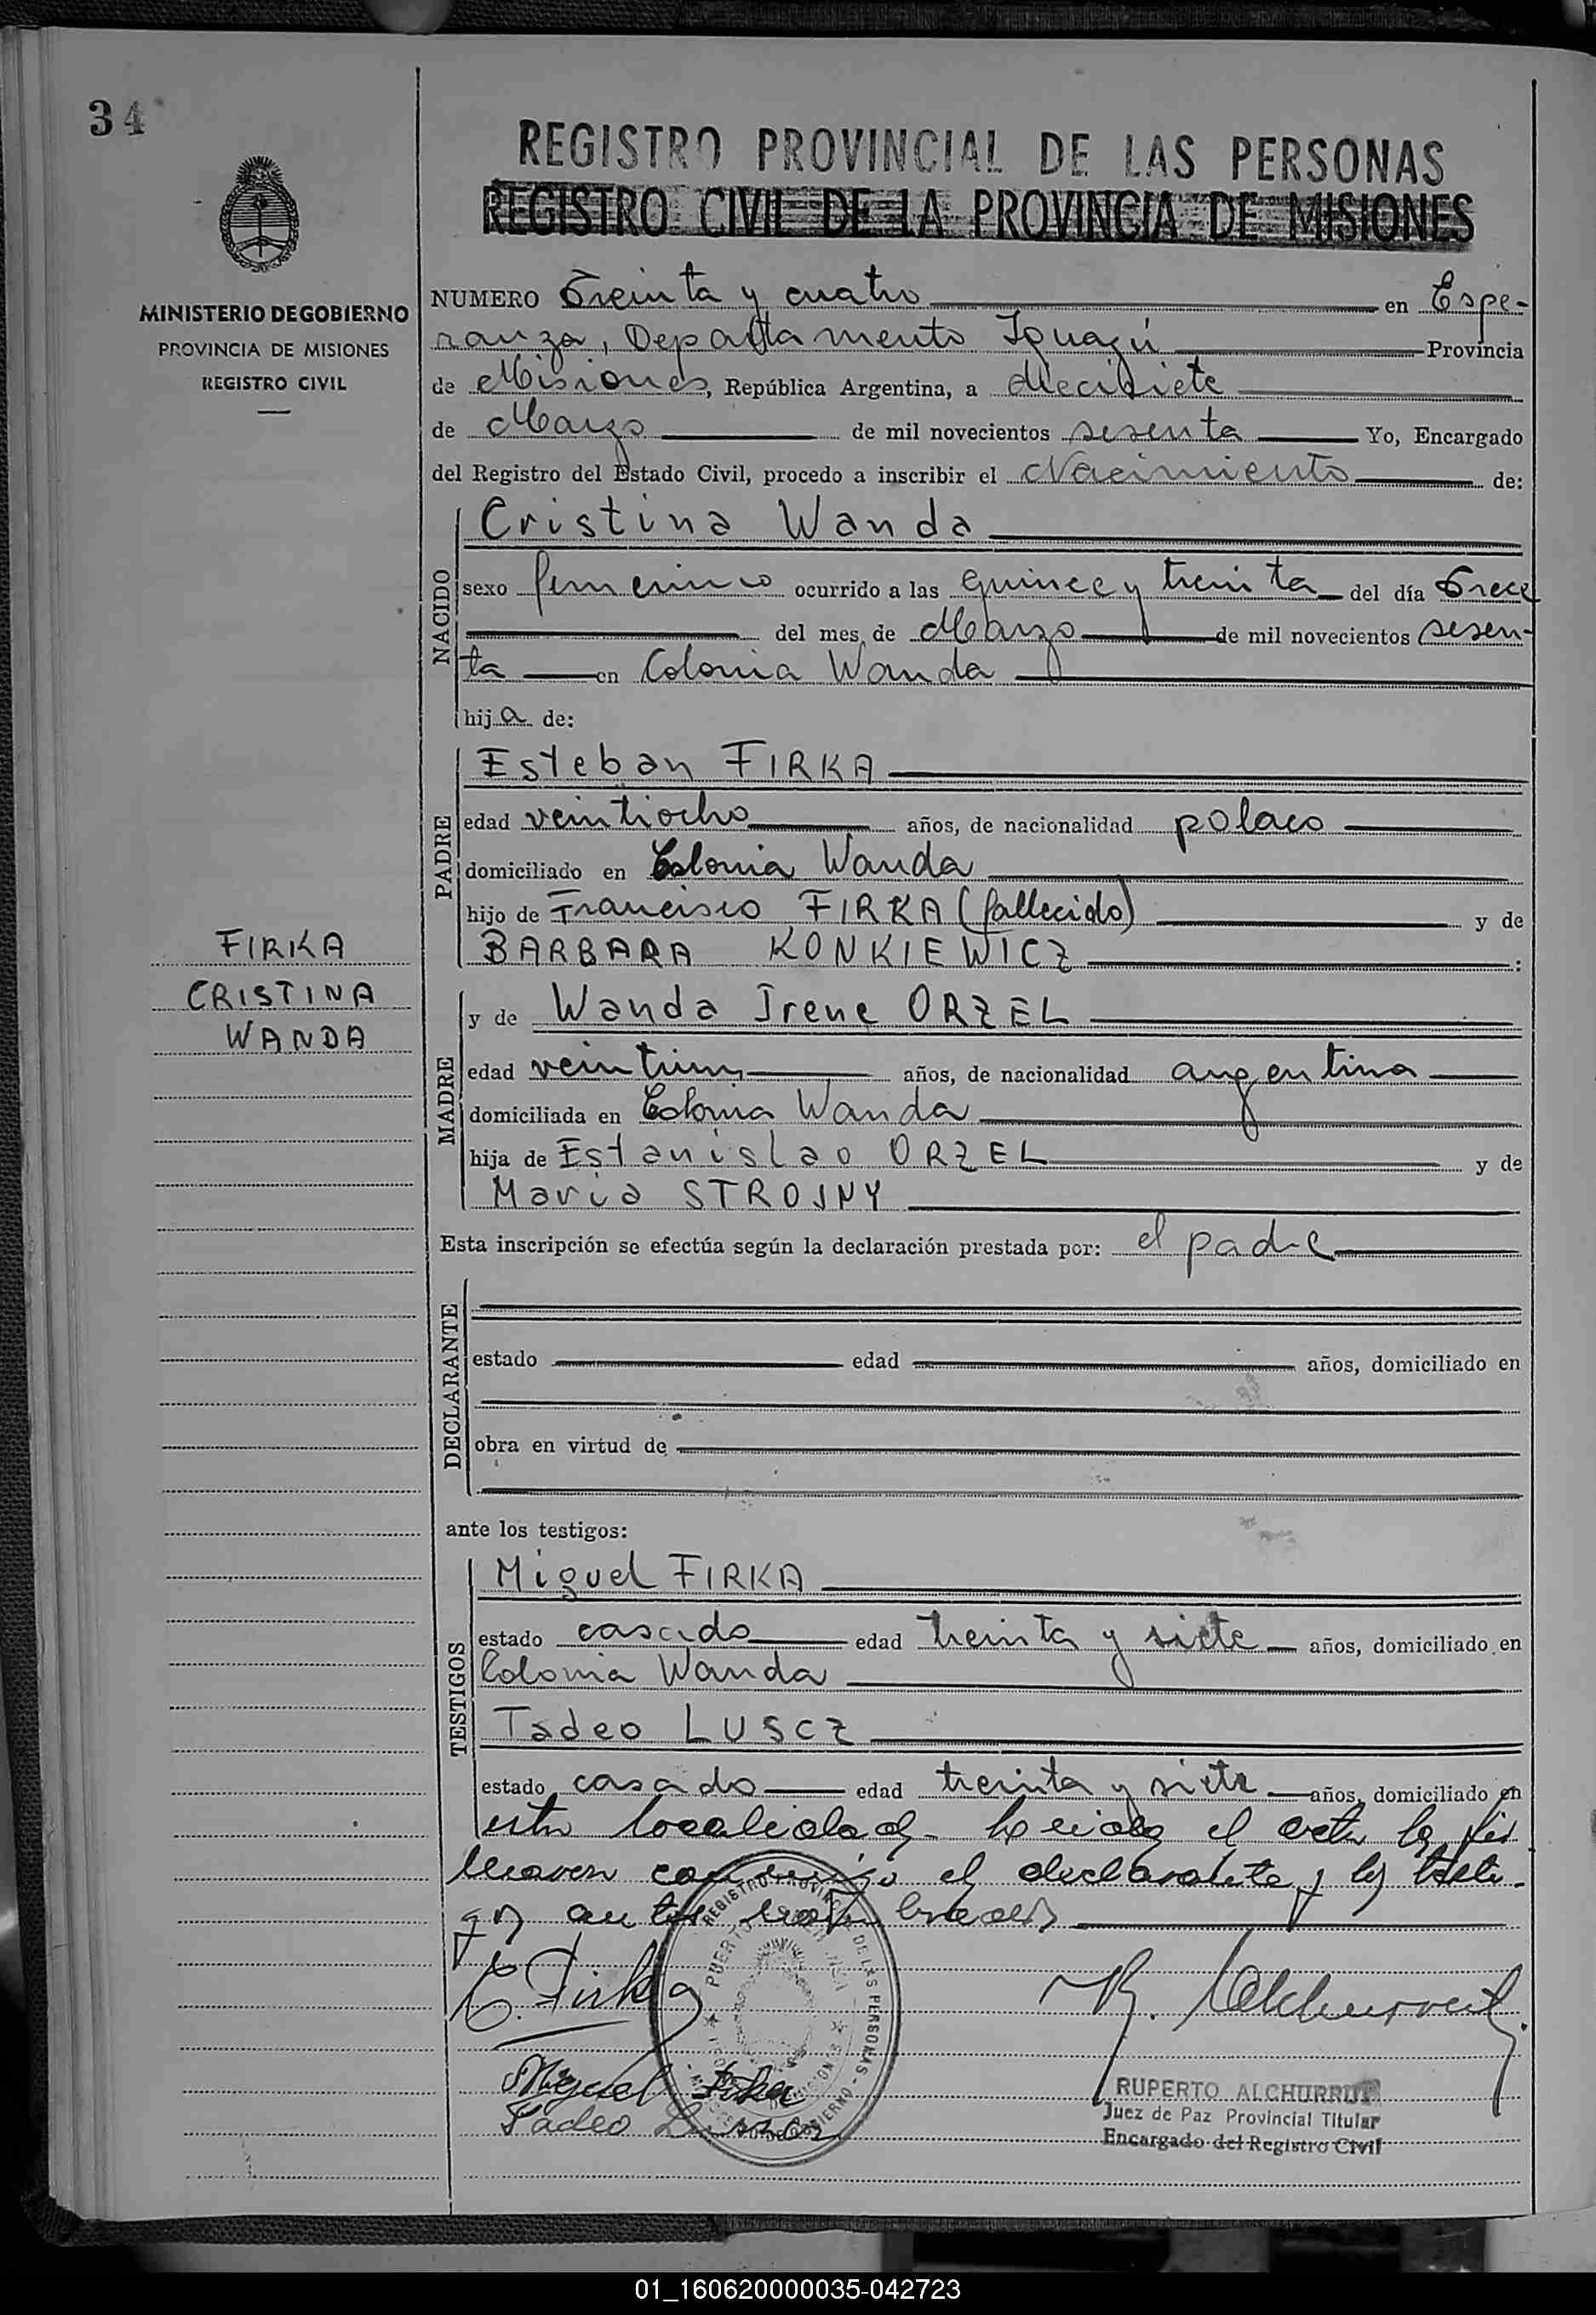 34
MINISTERIO DE GOBIERNO
PROVINCIA DE MISIONES
REGISTRO CIVIL
FIRKA
CRISTINA
WANDA
REGISTRO PROVINCIAL DE LAS PERSONAS
REGISTRO CIVIL DE LA PROVINCIA DE MISIONES
NUMERO Treinta y cuatro en Espe-
ranza, Departamento Iguazú Provincia
de Misiones, República Argentina, a diecisiete
de Marzo de mil novecientos sesenta Yo, Encargado
del Registro del Estado Civil, procedo a inscribir el Nacimiento de:
NACIDO
Cristina Wanda
sexo femenino ocurrido a las quince y treinta del día Trece
del mes de Marzo de mil novecientos sesen-
ta en Colonia Wanda
hija de:
PADRE
Esteban FIRKA
edad veintiocho años, de nacionalidad polaco
domiciliado en Colonia Wanda
hijo de Francisco FIRKA (fallecido) y de
BARBARA KONKIEWICZ :
MADRE
y de Wanda Irene ORZEL
edad veintiun años, de nacionalidad argentina
domiciliada en Colonia Wanda
hija de Estanislao ORZEL y de
Maria STROJNY
Esta inscripción se efectúa según la declaración prestada por: el padre
DECLARANTE
estado edad años, domiciliado en
obra en virtud de
ante los testigos:
TESTIGOS
Miguel FIRKA
estado casado edad treinta y siete años, domiciliado en
Colonia Wanda
Tadeo LUSCZ
estado casado edad treinta y siete años, domiciliado en
esta localidad. Leida el acta la fir
maron conmigo el declarante y los testi-
gos antes nombrados
E. Firka
R. Alchurrut
Miguel Firka
Tadeo
REGISTRO PROVINCIAL DE LAS PERSONAS
RUPERTO ALCHURRUT
Juez de Paz Provincial Titular
Encargado del Registro Civil
01_160620000035-042723